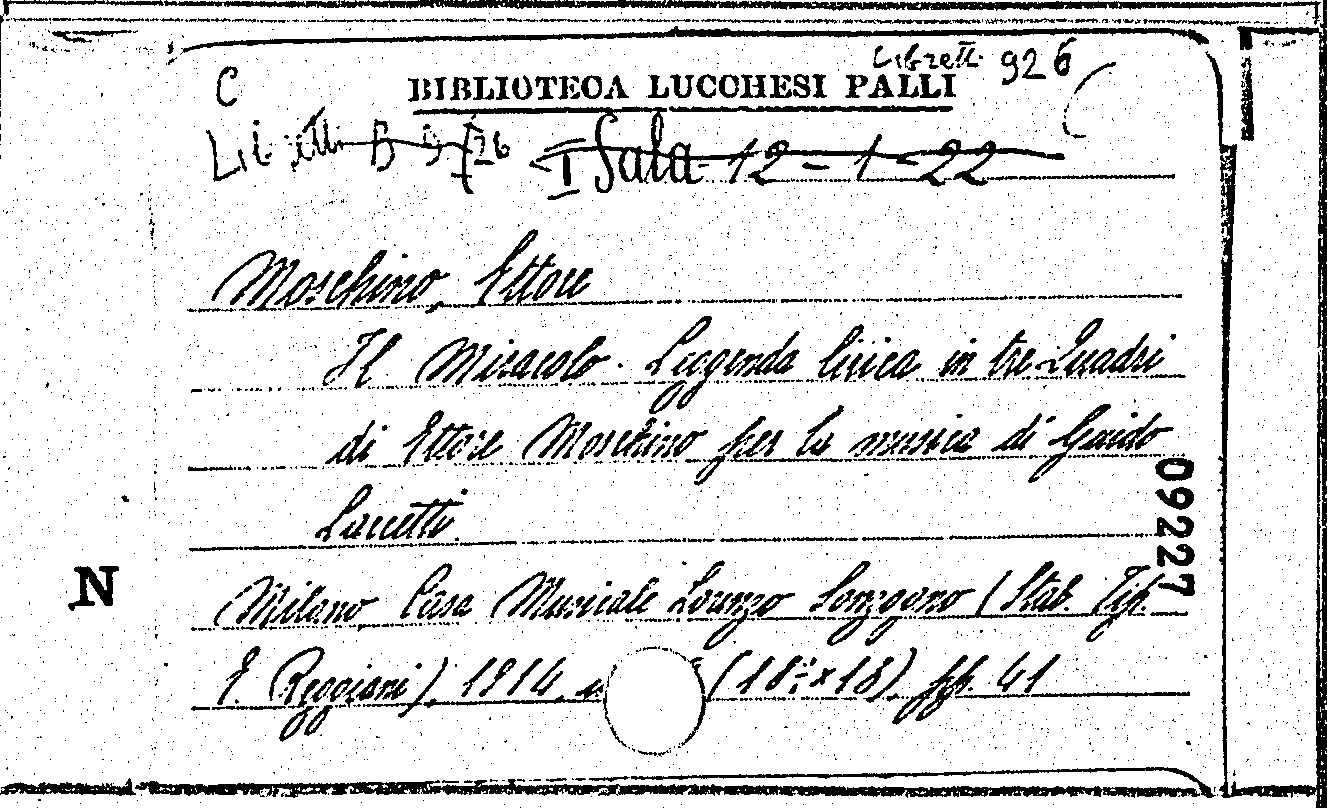 Libretti 926
C
BIBLIOTECA LUCCHESI PALLI
Libretti B 926
I Sala 12 - 1 - 22
Moschino, Ettore
Il Miracolo. Leggenda lirica in tre Quadri
di Ettore Moschino per la musica di Guido
Laccetti.
Milano, Casa Musicale Lorenzo Sonzogno (Stab. Tip.
E. Reggiani), 1914, (18 × 18), pp. 41
09227
N